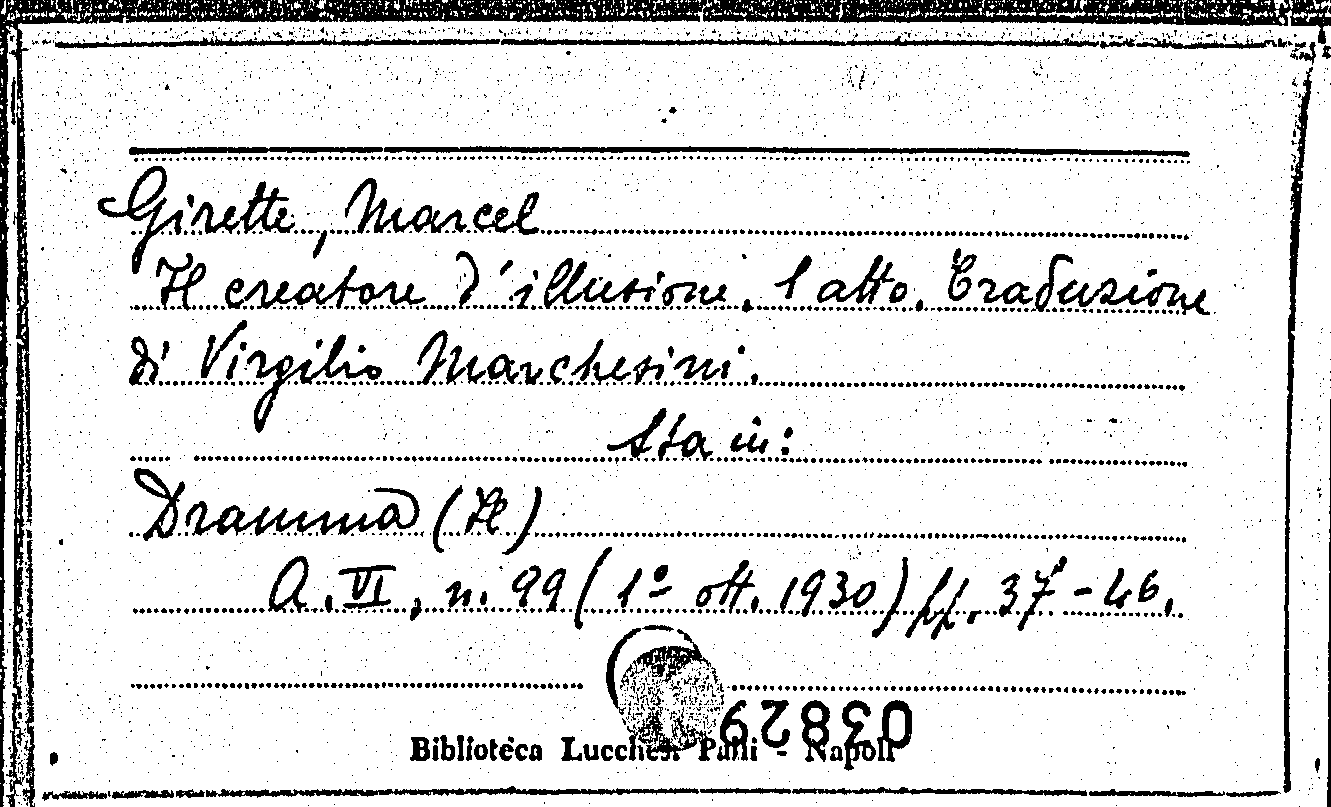 Girette, Marcel
Il creatore d'illusione. 1 atto. Traduzione
di Virgilio Marchesini.
Sta in:
Dramma (Il)
A. VI, n. 99 (1º ott. 1930) pp. 37-46.
03829
Biblioteca Lucchesi Palli - Napoli